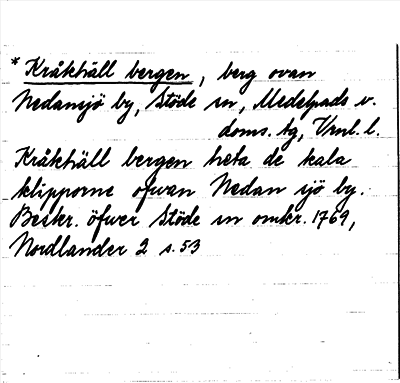 * Kråkhäll bergen, berg ovan
Nedansjö by, Stöde sn, Medelpads v.
doms. tg, Vrnl. l.
Kråkhäll bergen heta de kala
klipporne ofvan Nedan sjö by.
Beskr. öfwer Stöde sn omkr. 1769,
Nordlander 2 s. 53